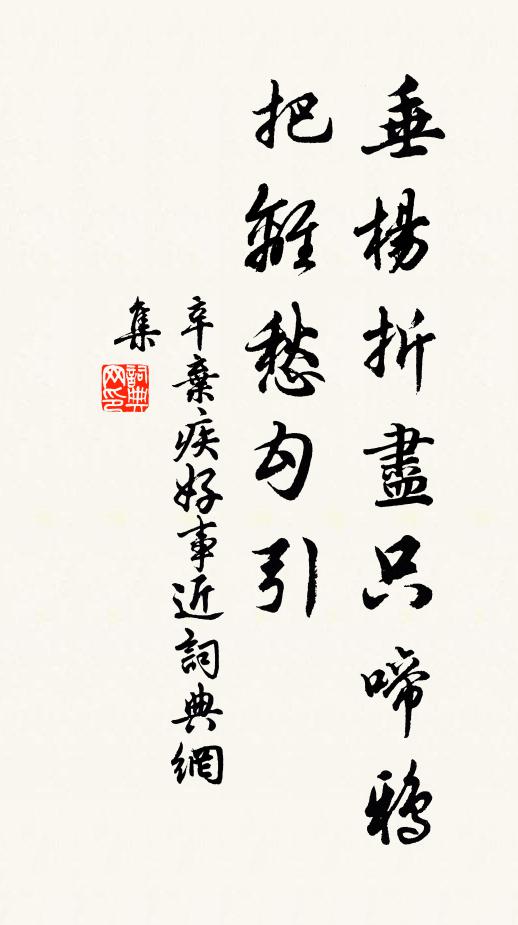 垂楊折盡只啼鴉
把離愁勾引
辛棄疾好事近詞典網
集
詞典網印